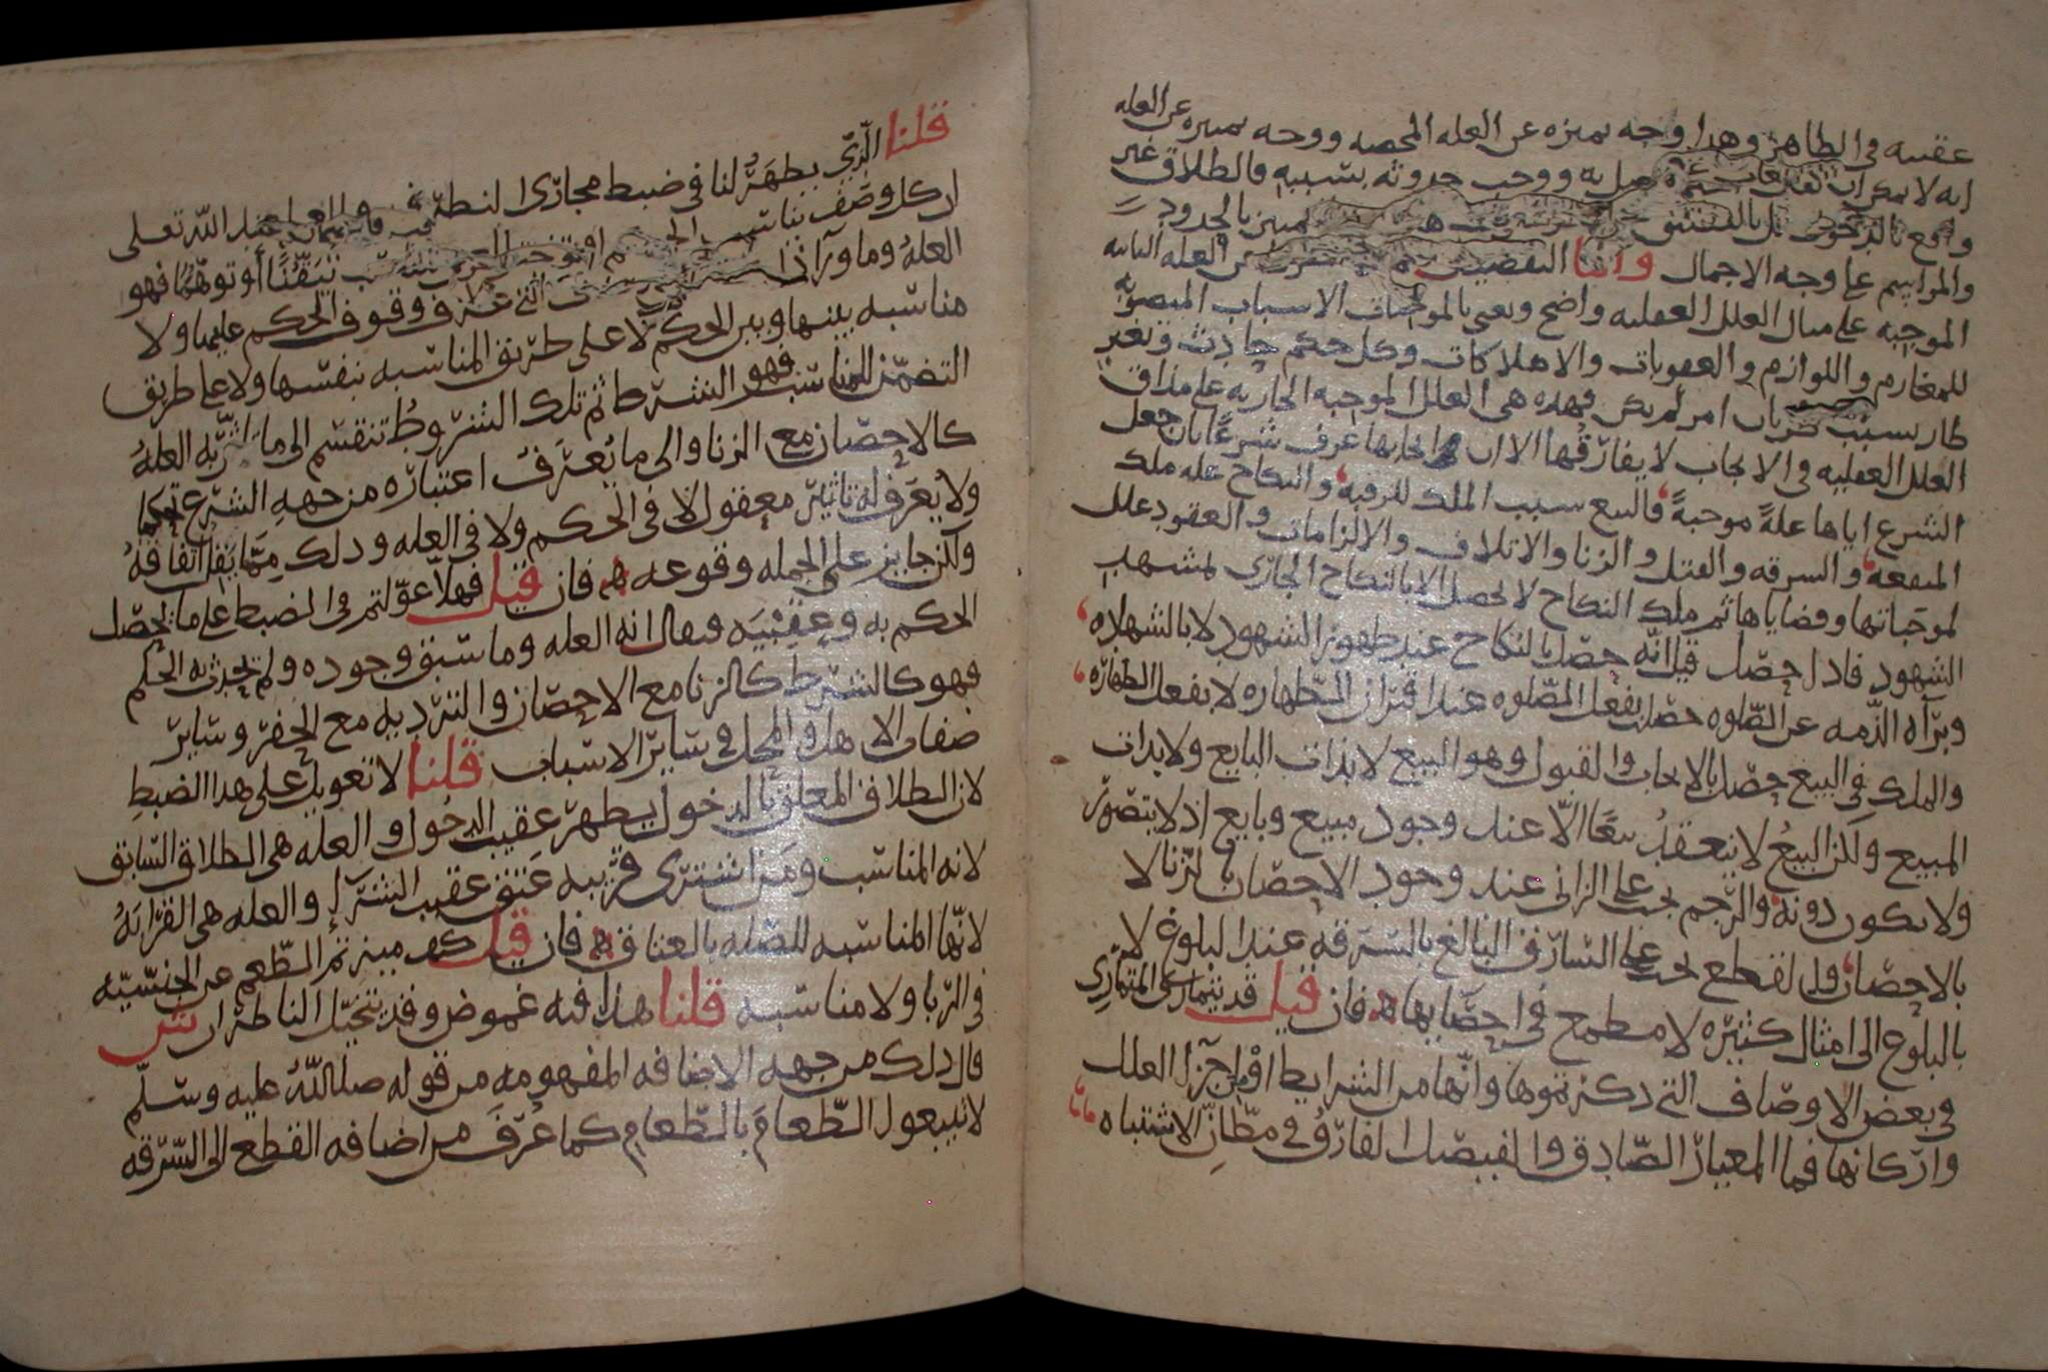 عقيبه في الظاهر وهذا وجه يميزه عن العله المحصه ووجه يميزه عن العله
انه لا حصل به ووجب حدوثه بسببه فالطلاق غير
واقع بالدخول بل بالتطليق بالحدود
والمراسم على وجه الاجمال واما التفصيل عن العله
الموجبه على مثال العلل العقليه واضح ونعني بالموجبات الاسباب المنصوبه
للمغارم واللوازم والعقوبات والاهلاكات وكل حكم حادث وتغير
طار بسبب امر لم يكن فهذه هي العلل الموجبه الجاريه على مذاق
العلل العقليه في الايجاب لا يفارقها الا ان ايجابها عرف شرعا بان جعل
الشرع اياها علة موجبة فالبيع سبب الملك للرقبه والنكاح عله ملك
المنفعه والسرقه والقتل والزنا والاتلاف والالزامات والعقود علل
لموجباتها وقضاياها ثم ملك النكاح لا يحصل الا بالنكاح الجاري بمشهد
الشهود فاذا حصل قيل انه حصل بالنكاح عند ظهور الشهود لا بالشهاده
وبرآه الذمه عن الصلوه حصل بفعل الصلوه عند اقتران الطهاره لا بفعل الطهاره
والملك في البيع حصل بالايجاب والقبول وهو البيع لا بذات البايع ولا بذات
المبيع ولكن البيع لا ينعقد بيعا الا عند وجود مبيع وبايع اذ لا يتصور
ولا يكون دونه والرجم يجب على الزاني عند وجود الاحصان بالزنا لا
بالاحصان والقطع يجب على السارق البالغ بالسرقه عند البلوغ لا
بالبلوغ الى امثال كثيره لا مطمع في احصايها فان قيل قد يتمارى المتماري
في بعض الاوصاف التي ذكرتموها وانها من الشرايط او من اجزآ العلل
واركانها فما المعيار الصادق والفيصل الفارق في مظان الاشتباه
قلنا الذي يظهر لنا في ضبط مجاري النظر عند الله تعلى
ان كل وصف يناسب تيقنا او توهما فهو
العله وما ورآ ذا التي عرف وقوف الحكم عليها ولا
مناسبه بينها وبين الحكم لا على طريق المناسبه بنفسها ولا على طريق
التضمن للمناسب فهو الشرط ثم تلك الشروط تنقسم الى ما العله
كالاحصان مع الزنا والى ما يعرف اعتباره من جهه الشرع تحكما
ولا يعرف له تاثير معقول لا في الحكم ولا في العله وذلك مما يقل اتفاقه
ولكن جايز على الجمله وقوعه فان قيل فهلا عولتم في الضبط على ما يحصل
الحكم به وعقيبه ويقال انه العله وما سبق وجوده ولم يحدث به الحكم
فهو كالشرط كالزنا مع الاحصان والترديه مع الحفر وساير
صفات الاهل والمحل في ساير الاسباب قلنا لا تعويل على هذا الضبط
لان الطلاق المعلق بالدخول يظهر عقيب الدخول والعله هي الطلاق السابق
لانه المناسب ومن اشترى قريبه عتق عقيب الشرآ والعله هي القرابه
لانها المناسبه للصله بالعتاق فان قيل كيف ميزتم الطعم عن الجنسيه
في الربا ولا مناسبه قلنا هذا فيه غموض وقد يتخيل الناظر ان
ذلك من جهه الاضافه المفهومه من قوله صلى الله عليه وسلم
لا تبيعوا الطعام بالطعام كما عرف من اضافه القطع الى السرقه